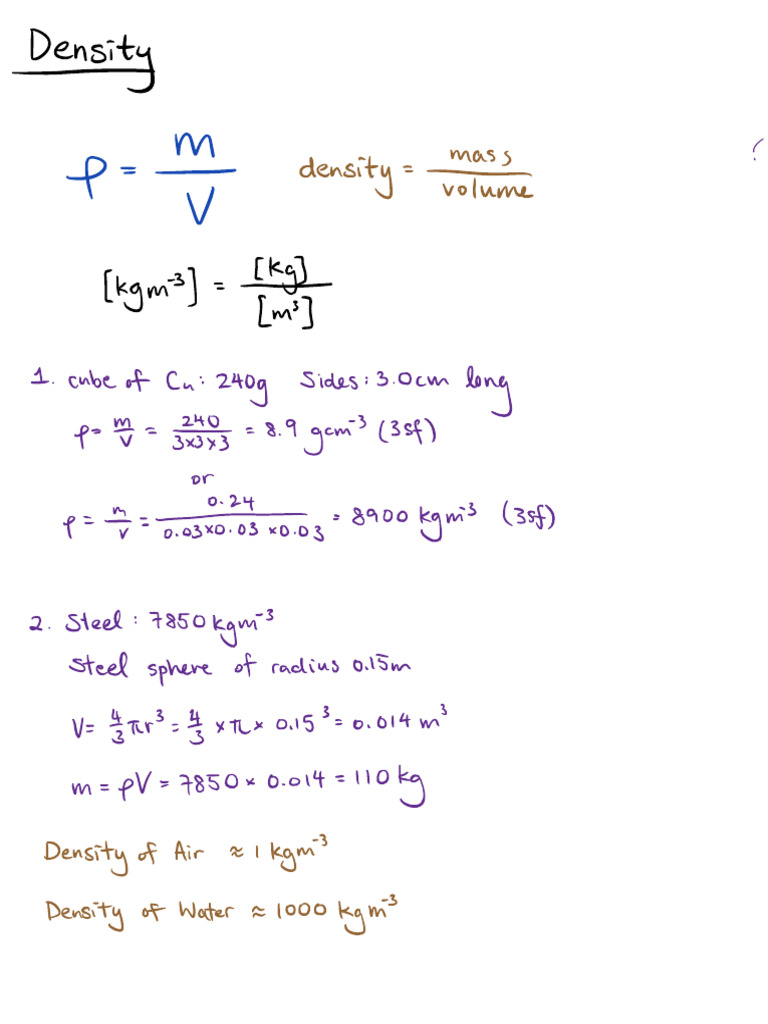 Density
ρ = m/V density = mass/volume
[kgm⁻³] = [kg]/[m³]
1. cube of Cu: 240g Sides: 3.0cm long
ρ = m/V = 240/3×3×3 = 8.9 gcm⁻³ (3sf)
or
ρ = m/V = 0.24/0.03×0.03×0.03 = 8900 kgm⁻³ (3sf)
2. Steel: 7850kgm⁻³
Steel sphere of radius 0.15m
V = 4/3 πr³ = 4/3 × π × 0.15³ = 0.014 m³
m = ρV = 7850 × 0.014 = 110 kg
Density of Air ≈ 1 kgm⁻³
Density of Water ≈ 1000 kgm⁻³